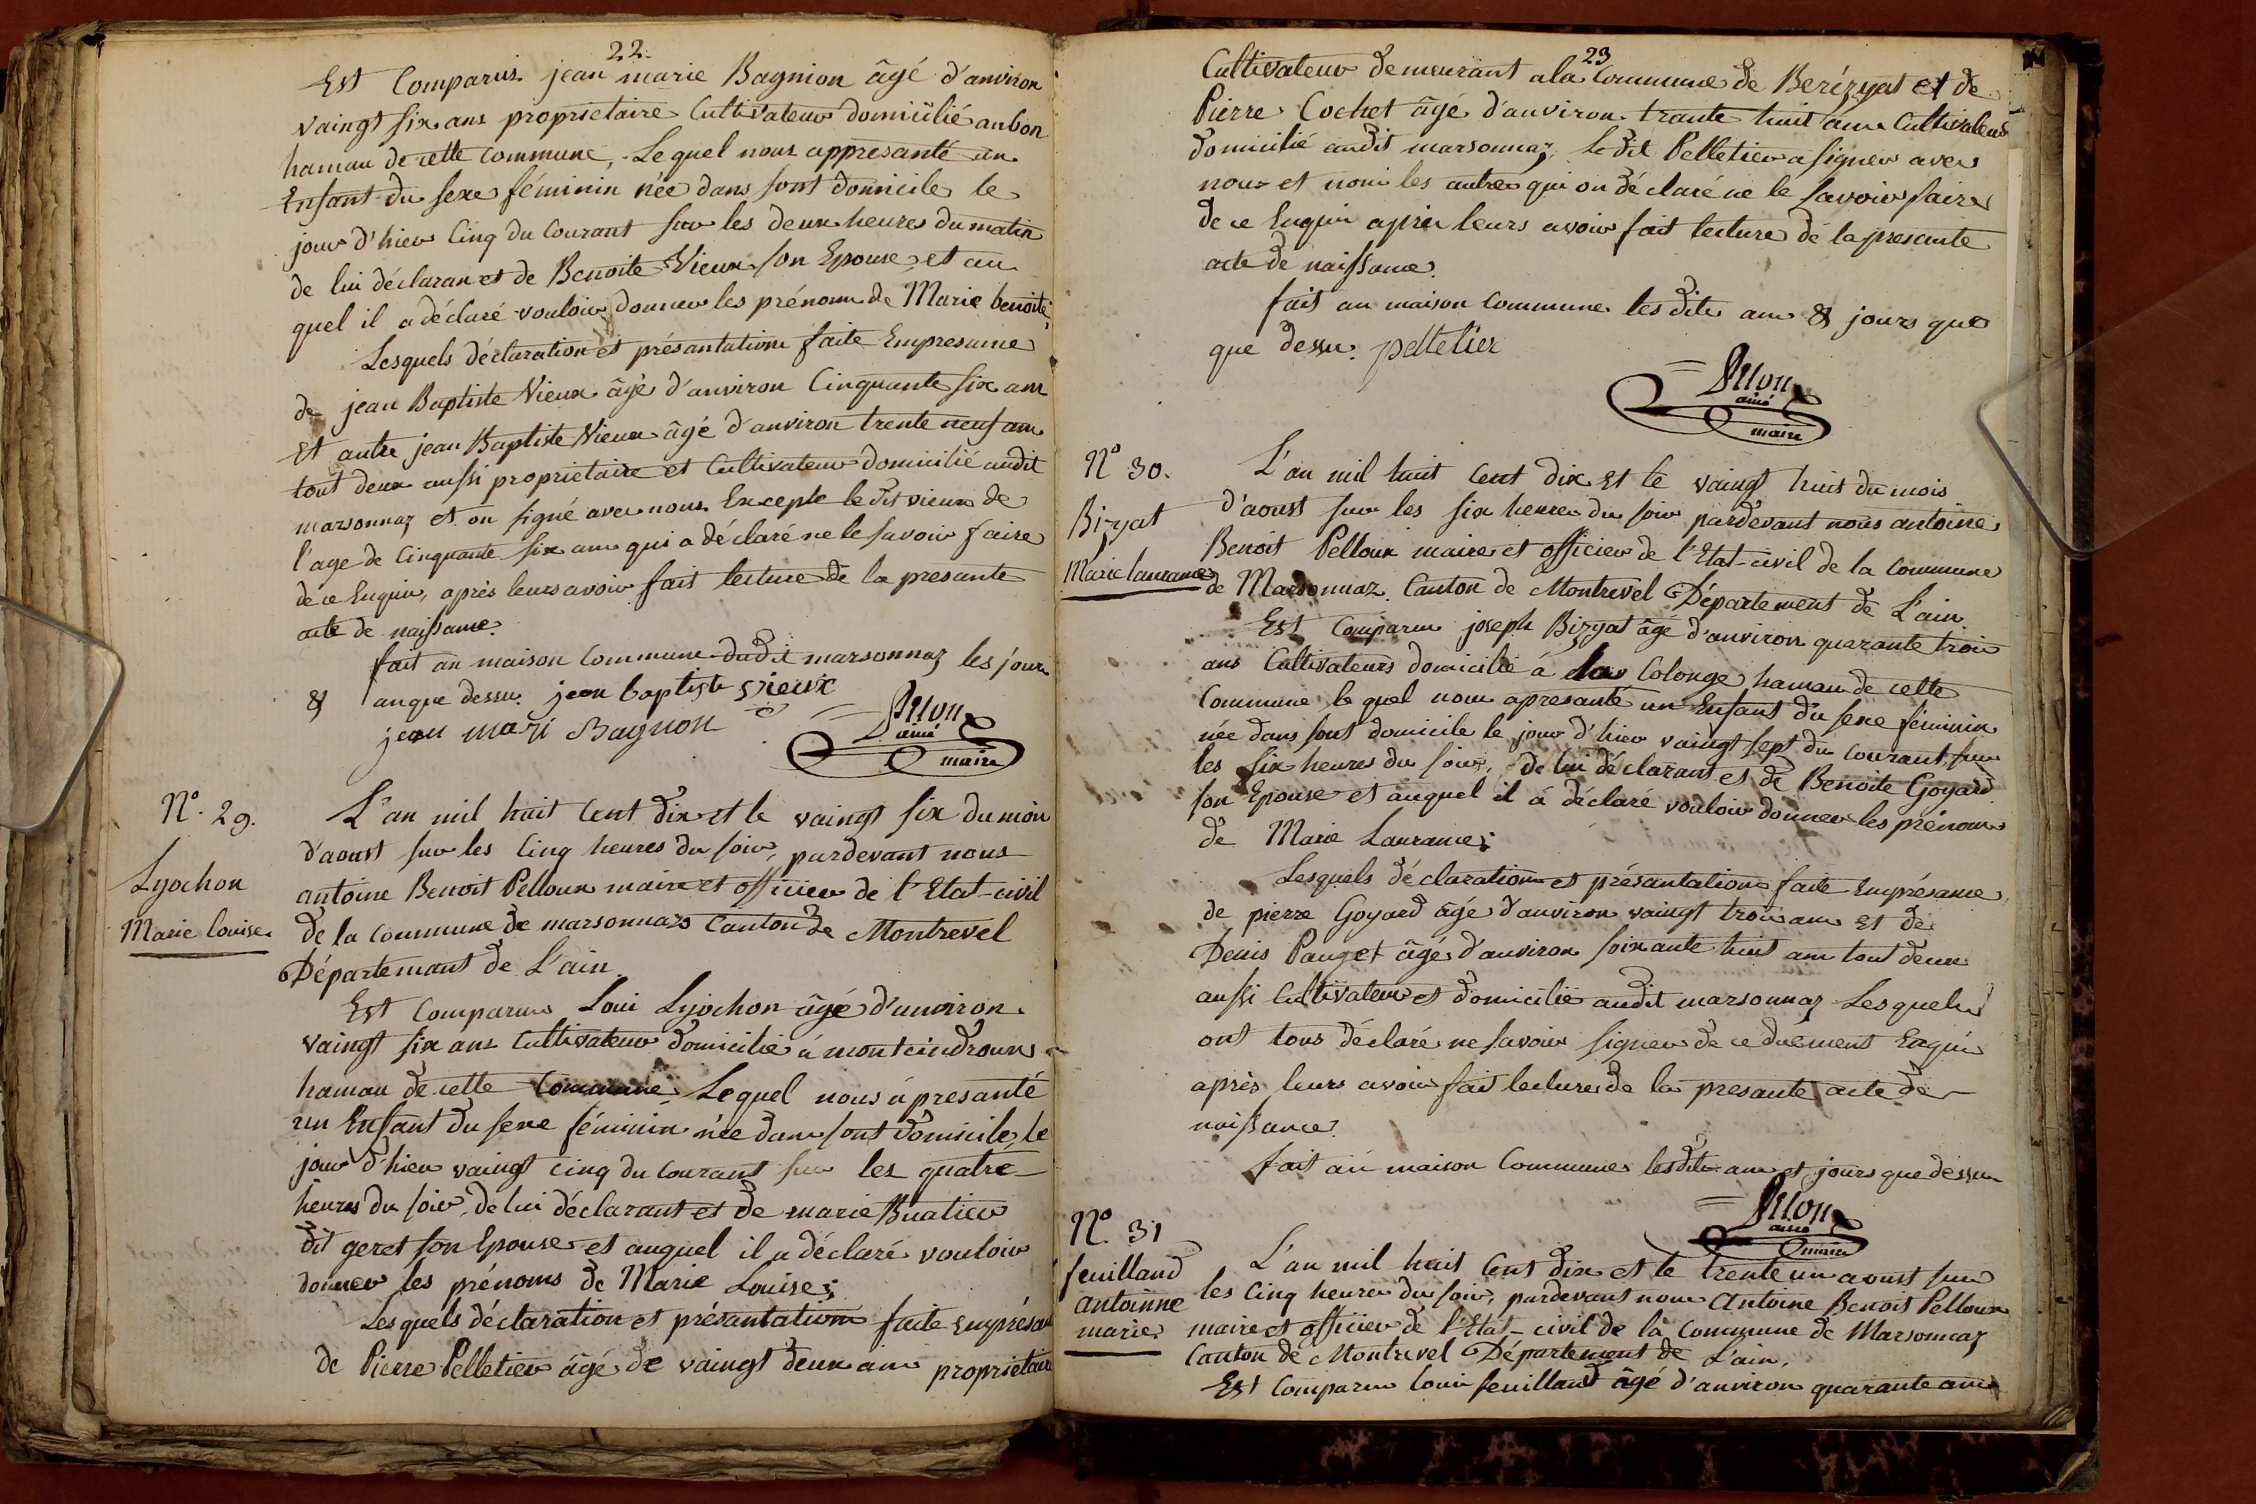 22.
Est Comparus jean marie Bagnion âgé d'anviron
vaingt six ans proprietaire Cultivateur domicilié au bon
hamau de cette commune, Lequel nous appresanté un
Enfant du sexe féminin née dans sont domicile le
jour d'hier Cinq du Courant sur les deux heures du matin
de lui déclaran et de Benoite Vieux son Epouse, et au
quel il a déclaré vouloir donner les prénom de Marie benoite;
Lesquels déclaration et présantation faite Empresance
de jean Baptiste Vieux âgé d'anviron Cinquante six ans
Et autre jean Baptiste Vieux âgé d'anviron trente neuf ans
tout deux aussi proprietaire et Cultivateur domicilié audit
marsonnaz et on signé avec nous Excepte le dit vieux de
l'age de Cinquante six ans qui a déclaré ne le savoir faire
de ce Enquis, après leurs avoir fait lecture de la presante
acte de naissance.
fait an maison Commune dudit marsonnaz les jour
& an que dessu. jean baptiste vieux
jean mari Bagnon
ainé
maire
N.º 29.
Lyochon
Marie louise.
L'an mil huit Cent dix et le vaingt six du mois
d'aoust sur les Cinq heures du soir, pardevant nous
antoine Benoit Pelloux maire et officier de l'Etat-civil
de la Commune de marsonnas Canton de Montrevel
Départemant de L'ain.
Est Comparus Loui Lyochon âgé d'anviron
vaingt six ans Cultivateur domicilié à
hamau de cette Commune, Lequel nous a presanté
un Enfant du sexe féminin née dans sont domicile, le
jour d'hier vaingt cinq du Courant sur les quatre
heures du soir, de lui déclarant et de marie Buatier
dit geret son Epouse et auquel il a déclaré vouloir
donner les prénoms de Marie Louise;
Lesquels déclaration et présantation faite Emprésan
de Pierre Pelletier âgé de vaingt deux ans proprietaire
23
Cultivateur demeurant a la Commune de Berézyat et de
Pierre Cochet âgé d'anviron trante huit ans Cultivateur
domicilié audit marsonnaz, le dit Pelletier a signer avec
nous et noni les autres qui on déclaré ne le savoir faire
de ce Enquis après leurs avoir fait lecture de la presante
acte de naissance.
fait an maison Commune les dits ans & jours que
que dessu. pelletier
ainé
maire
Nº 30.
Bizyat
Marie laurance
L'an mil huit Cent dix Et le vaingt huit du mois
d'aoust sur les six heures du soir pardevant nous antoine
Benoit Pelloux maire et officier de l'Etat-civil de la Commune
de Marsonnaz Canton de Montrevel Département de L'ain
Est Comparus joseph Bizyat âgé d'anviron quarante trois
ans Cultivateurs domicilié à la Colonge hamau de cette
Commune le quel nous apresanté un Enfant du sexe féminin
née dans sont domicile le jour d'hier vaingt sept du courant sur
les six heures du soir, de lui déclarant et de Benoite Goyard
son Epouse et auquel il à déclaré vouloir donner les prénoms
de Marie Laurance;
Lesquels déclaration et présantation faite Emprésance
de pierre Goyard âgé d'anviron vaingt trois ans Et de
Denis Pauget âgé d'anviron soixante huit ans tout deux
aussi Cultivateur et domicilié audit marsonnaz Lesquels
ont tous déclaré ne savoir signer de ce duement Enquis
après leurs avoir fait lecture de la presante acte de
naissance.
fait an maison Commune lesdits ans et jours que dessu
ainé
maire
Nº. 31
feuilland
antoinne
marie.
L'an mil huit Cent dix et le trente un aoust sur
les Cinq heures du soir, pardevant nous Antoine Benoit Pelloux
maire et officier de l'Etat-civil de la Commune de Marsonnaz
Canton de Montrevel Département de L'ain.
Est Comparus loui feuilland âgé d'anviron quarante ans